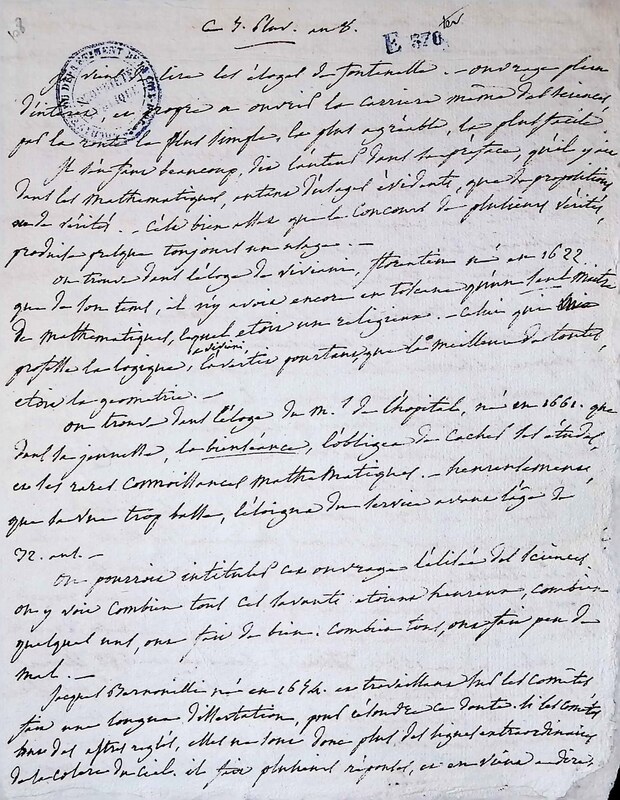 ce 7. pluv. an 8.
E 370 ter
je viens de lire les éloges de fontenelle. - ouvrage plein
d'interet, et propre a ouvrir la carriere même des sciences,
par la route la plus simple, la plus agréable, la plus facile.
il s'en faut beaucoup, dis l'auteur dans sa preface, qu'il y ait
dans les mathematiques, autant d'usages évidents, que de propositions
ou de vérités. - c'est bien assez que le concours de plusieurs vérités,
produise presque toujours un usage. -
on trouve dans l'éloge de viviani, florentin né en 1622.
que de son tems, il n'y avoit encore en toscane qu'un seul maitre
de mathematiques, lequel etoit un religieux. - celui qui
professa la logique, a viviani l'avertit pourtant que la meilleure de toutes,
etoit la geometrie. -
on trouve dans l'éloge du m.is de l'hopital, né en 1661. que
dans sa jeunesse, la bienséance, l'obligea de cacher ses études,
et ses rares connoissances mathematiques. - heureusement,
que sa vue trop basse, l'éloigna du service avant l'âge de
32. ans. -
on pourroit intituler cet ouvrage l'élisée des sciences.
on y voit combien tous ces savants etoient heureux, combien
quelques uns, ont fait de bien. combien tous, ont fait peu de
mal. -
jacques Bernouilli né en 1654. en travaillant sur les comètes
fait une longue dissertation, pour résoudre ce doute. si les comètes
sont des astres reglés, elles ne sont donc plus des signes extraordinaires
de la colere du ciel. il fait plusieurs réponses, et en vient a dire,